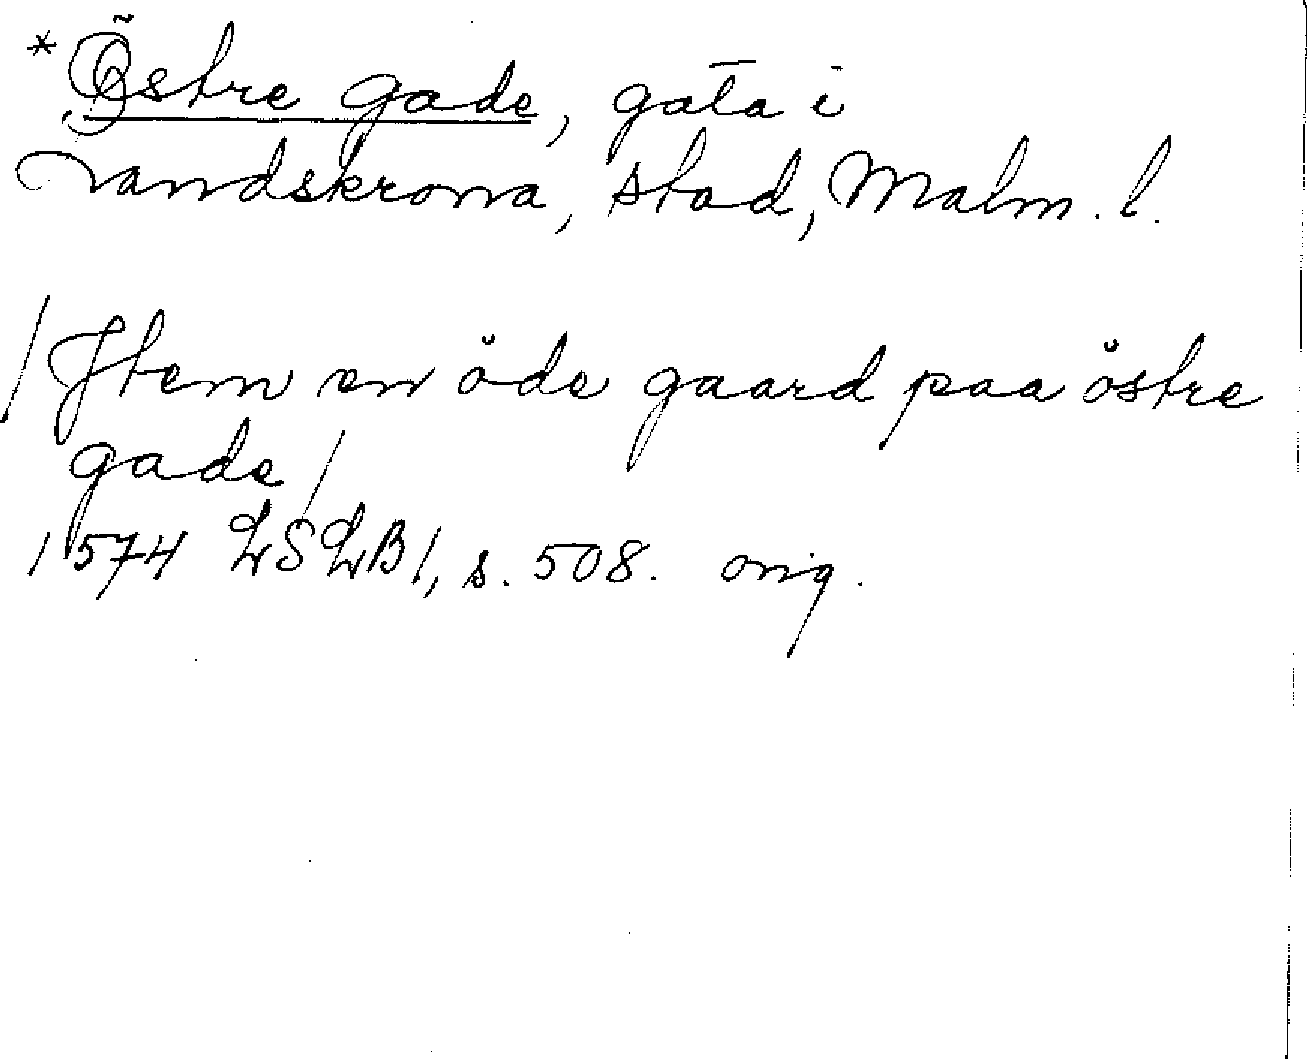 *Östre gade, gata i
Landskrona, stad, Malm. l.
/Jtem en öde gaard paa östre
gade/
1574 LSLB1, s. 508. orig.